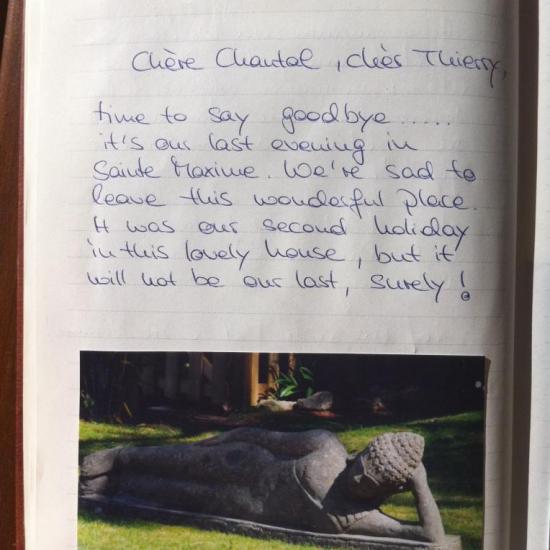 Chère Chantal, chèr Thierry,
time to say goodbye.....
it's our last evening in
Sainte Maxime. We're sad to
leave this wonderful place.
It was our second holiday
in this lovely house, but it
will not be our last, surely!